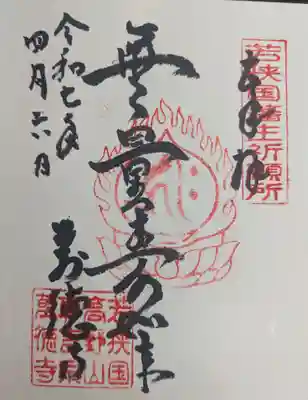 奉拝
若狭国
生祈願所
無量寿如来
萬徳寺
令和七年
四月
若狭国
高野山
真言宗
萬徳寺